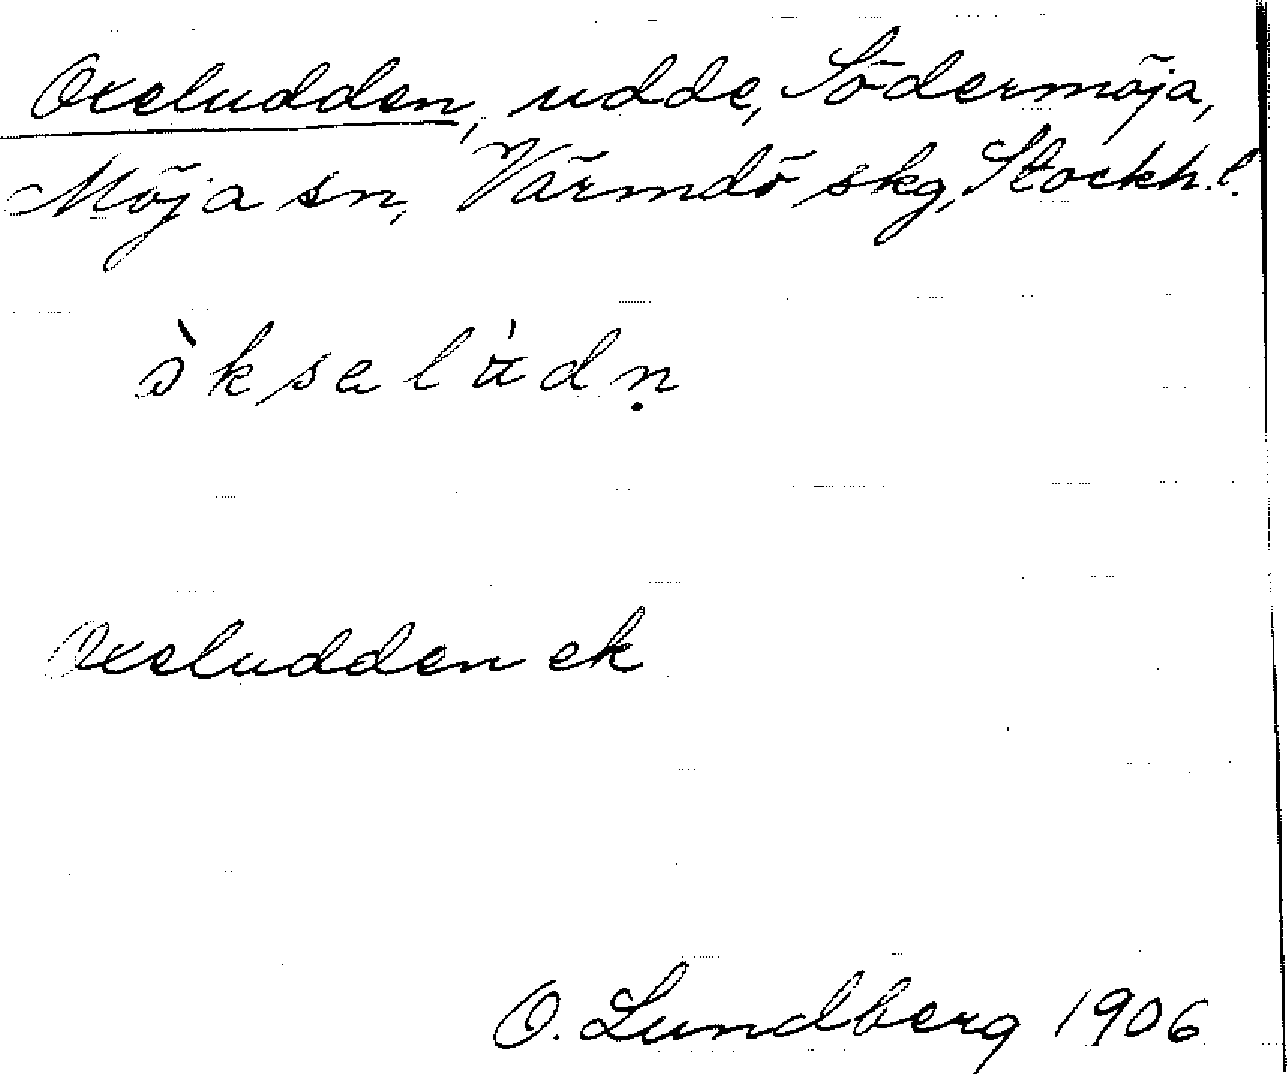 Oxeludden, udde, Södermöja,
Möja sn, Värmdö skg, Stockh. l.
ɔ̀ksalu̇̀dṇ
Oxeludden ek
O. Lundberg 1906